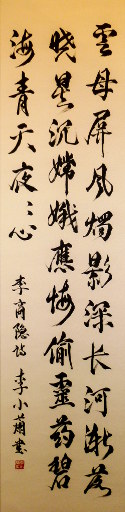 雲母屏風燭影深長河漸落
曉星沉嫦娥應悔偷靈药碧
海青天夜〻心
李商隐詩 李小蕭書